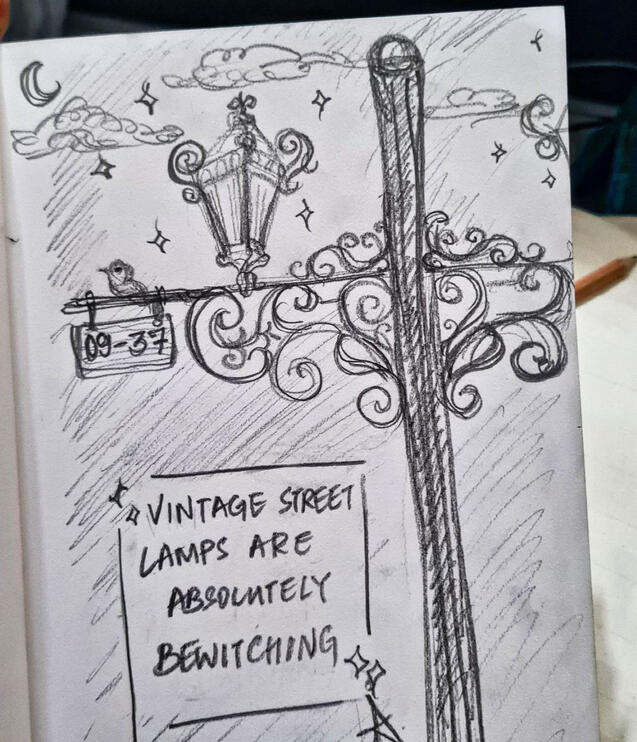 09-37
VINTAGE STREET
LAMPS ARE
ABSOLUTELY
BEWITCHING